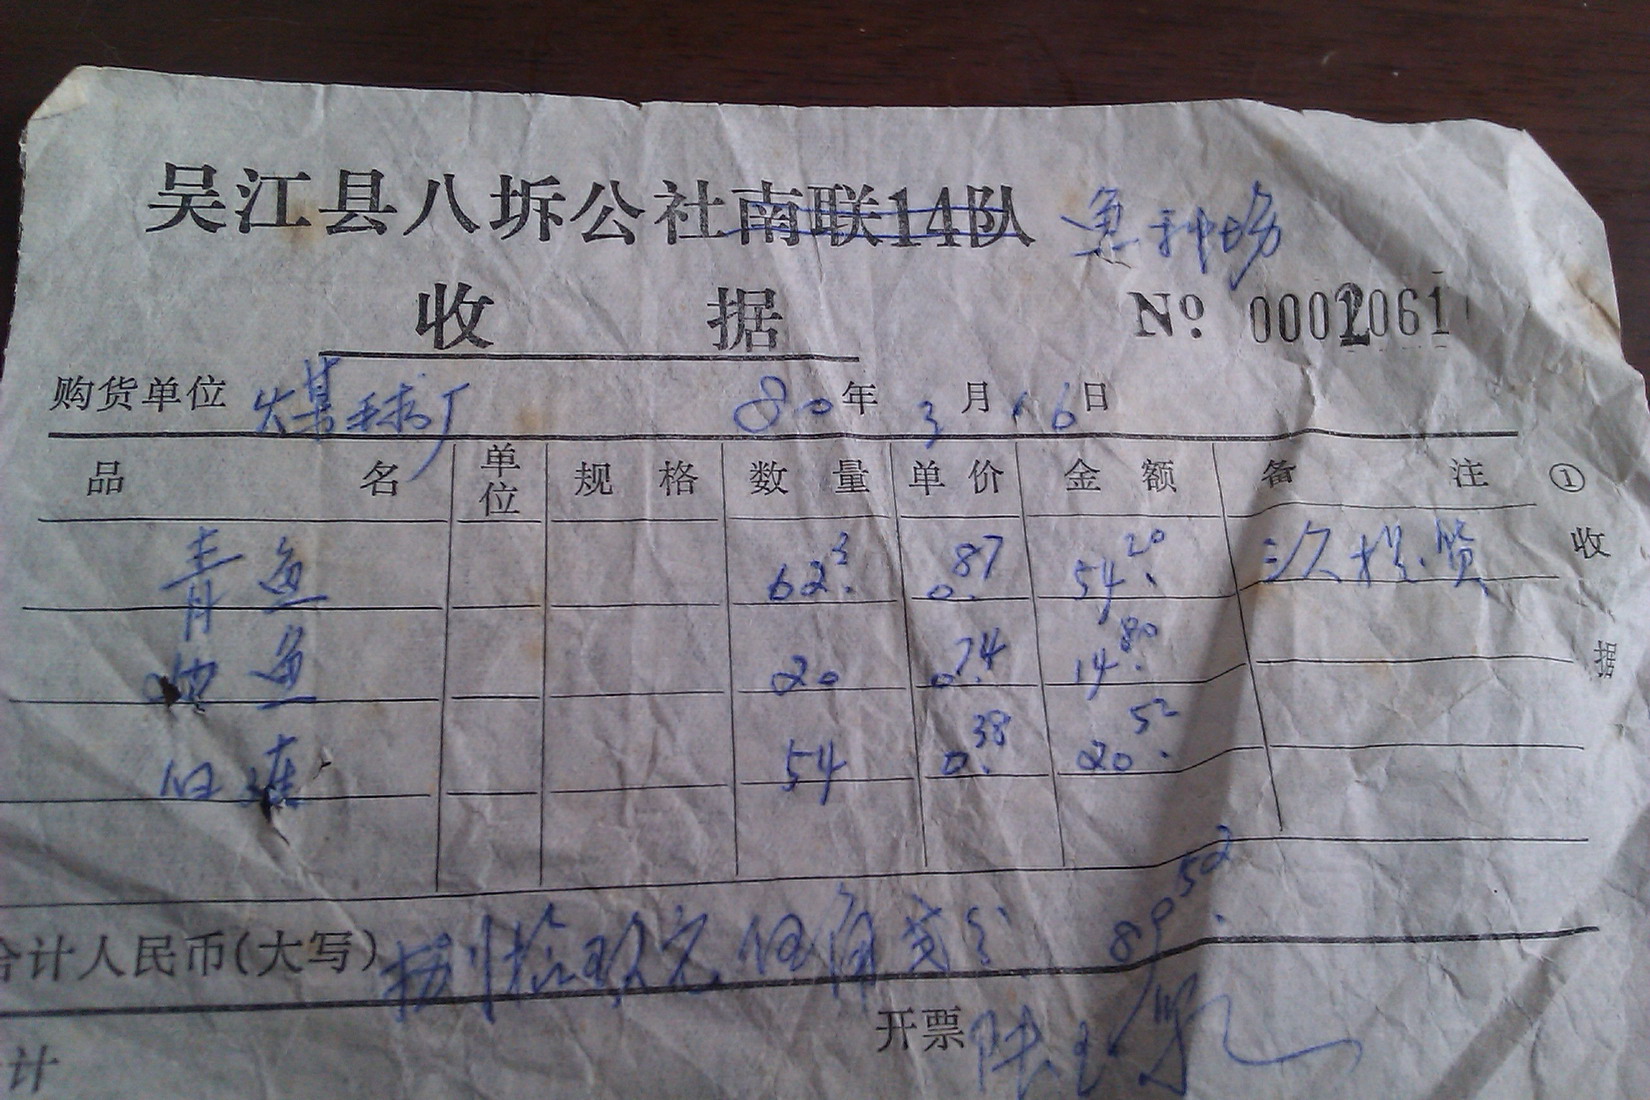 吴江县八坼公社南联14队 鱼种场
收 据
№ 0002061
购货单位 煤球厂 80年 3月16日
品 名 单位 规 格 数 量 单 价 金 额 备 注 ①收据
青鱼 62.3 0.87 54.20
鱼 20 0.74 14.80
白鲢 54 0.38 20.52
合计人民币(大写) 捌拾玖元伍角贰分 89.52
开票 陆
计